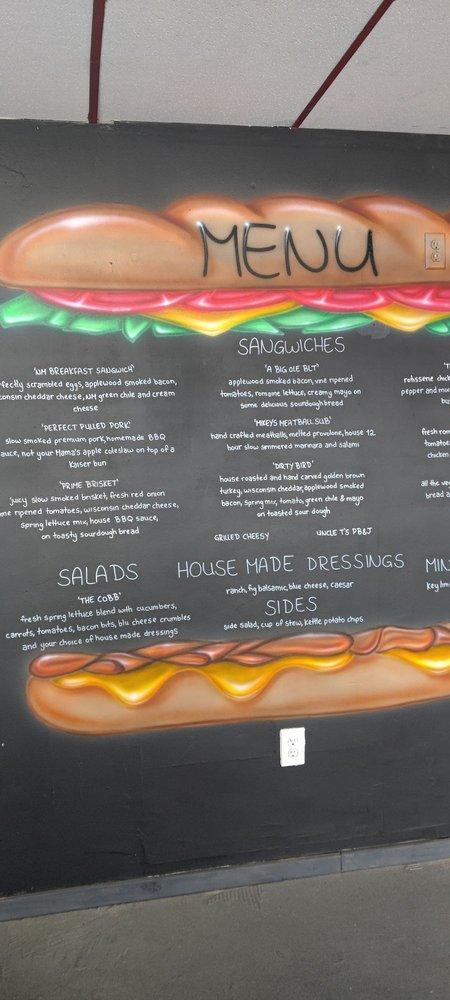 MENU
SANGWICHES
'NM BREAKFAST SANGWICH'
scrambled eggs, applewood smoked bacon,
cheddar cheese, NM green chile and cream
cheese
'PERFECT PULLED PORK'
slow smoked premium pork, homemade BBQ
not your Mama's apple coleslaw on top of a
Kaiser bun
'PRIME BRISKET'
juicy slow smoked brisket, fresh red onion
ripened tomatoes, wisconsin cheddar cheese,
spring lettuce mix, house BBQ sauce,
on toasty sourdough bread
'A BIG OLE BLT'
applewood smoked bacon, vine ripened
tomatoes, romaine lettuce, creamy mayo on
some delicious sourdough bread
'MIKEY'S MEATBALL SUB'
hand crafted meatballs, melted provolone, house 12
hour slow simmered marinara and salami
'DIRTY BIRD'
house roasted and hand carved golden brown
turkey, wisconsin cheddar, applewood smoked
bacon, spring mix, tomato, green chile & mayo
on toasted sour dough
GRILLED CHEESY
UNCLE T'S PB&J
fresh
chicken
all the
bread
SALADS
'THE COBB'
fresh spring lettuce blend with cucumbers,
carrots, tomatoes, bacon bits, blu cheese crumbles
and your choice of house made dressings
HOUSE MADE DRESSINGS
ranch, fig balsamic, blue cheese, caesar
SIDES
side salad, cup of stew, kettle potato chips
key